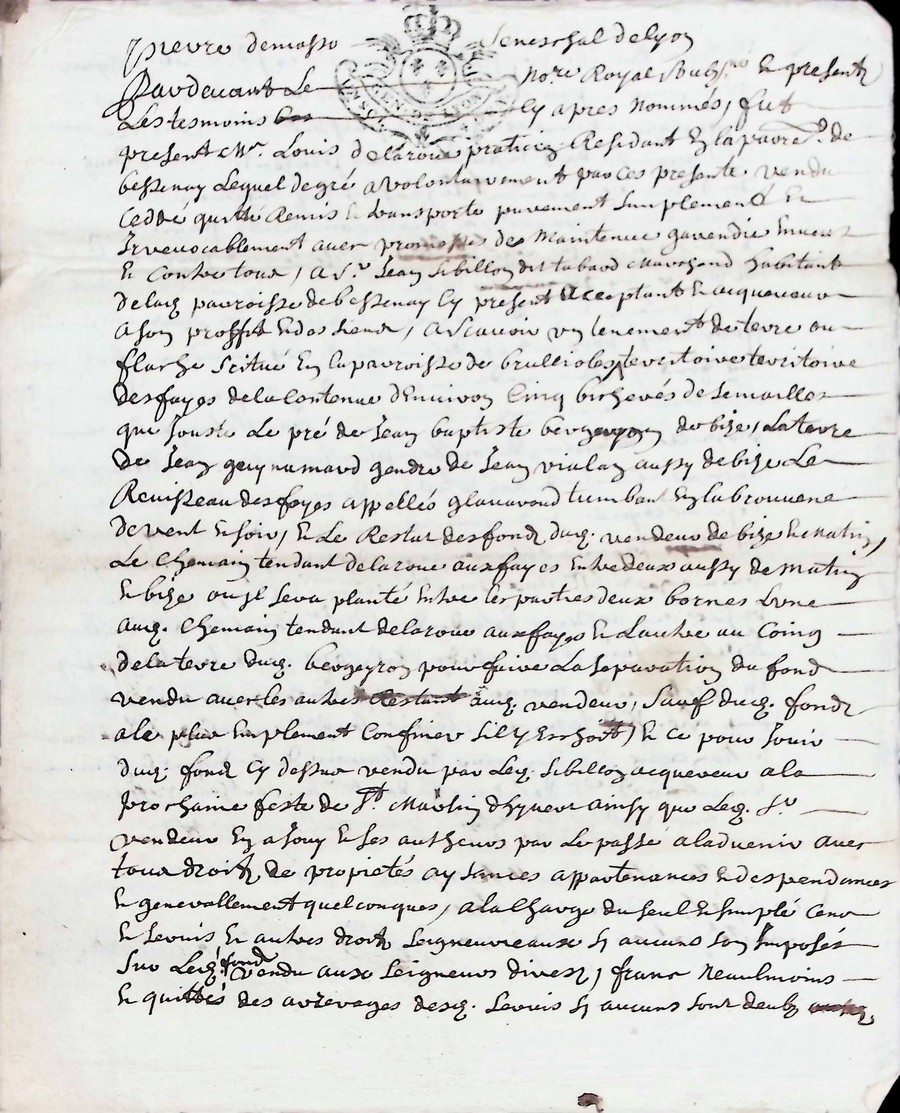 pierre demasso seneschal de lyon
Pardevant Le no.re Royal soubs.ne et present
Les tesmoins Cy apres nommés, fut
present M.r Louis delaroue praticien Residant En la parre. de
bessenay Lequel de gré a volontairement par ces presente vendu
Ceddé quitté Remis et transporte purement simplement et
Irrevocablement avec promesse de Maintenue garendie Envers
et Contre tous, a S.r Jean sibillon dit tabard Marchand habitant
delad. parroisse de bessenay Cy present acceptant et acquereur
a son proffit et des siens, a scavoir un tenement de terre ou
flache scitué En la parroisse de brulliolles territoire territoire
des fayes de la Contenue d'Environ Cinq bicherés de semailles
qui jouste Le pré de jean baptiste bergeyron de bize, La terre
de Jean guy numard gendre de Jean vialan aussy de bize Le
Ruisseau des fayes appellés glavarond tumbant En la brevene
de vent et soir, et Le Restat des fond dud. vendeur de bize et matin,
Le Chemain tendant delaroue aux fayes Entre deux aussy de matin
et bize ou jl sera planté Entre les parties deux bornes L'une
aud. Chemain tendant delaroue aux fayes et L'autre au Coing
de la terre dud. bergeyron pour faire La separation du fond
vendu avec les autres Restant aud. vendeur, sauf dud. fond
a le plus Emplement Confiner sil y Esshoit, et ce pour jouir
dud. fond Cy dessus vendu par Led. sibillon acquereur a la
prochaine feste de St. Martin d'hyver ainsy que Led. S.r
vendeur En a jouy et ses autheurs par Le passé a l'advenir avec
tous droits de proprietés aysances appartenances et despendances
et generallement quelconques, a la Charge du seul et simple Cens
et servis et autres droits seigneureaux sy aucuns son Imposés
sur Led. fond vendu aux seigneurs divers, franc neaulmoins
et quitte des arrerages desd. servis sy aucuns sont deubs